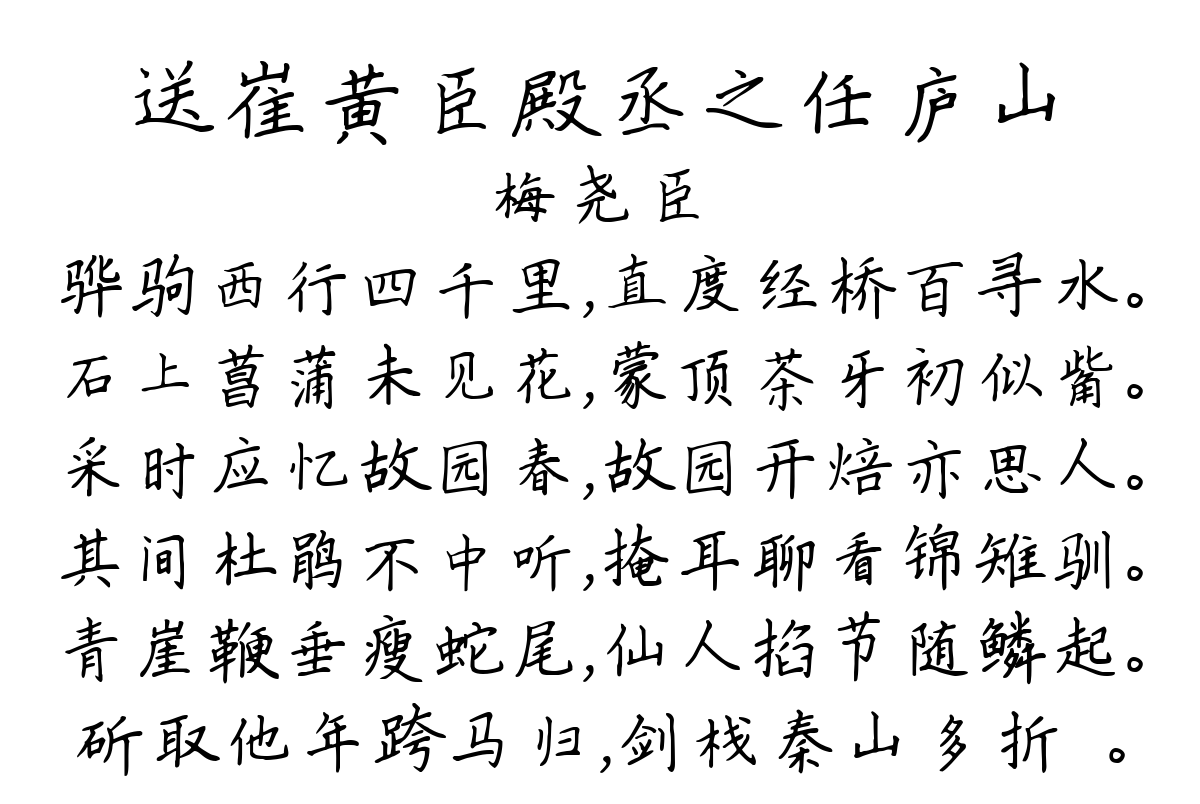 送崔黄臣殿丞之任庐山
梅尧臣
骅驹西行四千里,直度经桥百寻水。
石上菖蒲未见花,蒙顶茶牙初似觜。
采时应忆故园春,故园开焙亦思人。
其间杜鹃不中听,掩耳聊看锦雉驯。
青崖鞭垂瘦蛇尾,仙人掐节随鳞起。
斫取他年跨马归,剑栈秦山多折 。